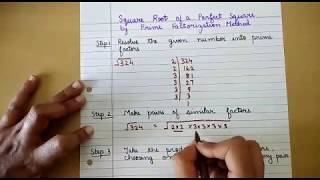 Square Root of a Perfect Square
by Prime Factorization Method
Step 1 Resolve the given number into prime
factors
√324
2 | 324
2 | 162
3 | 81
3 | 27
3 | 9
3 | 3
1
Step 2 Make pairs of similar factors
√324 = √2×2 × 3×3×3×3
Step 3 Take the prod factors,
choosing on every pair